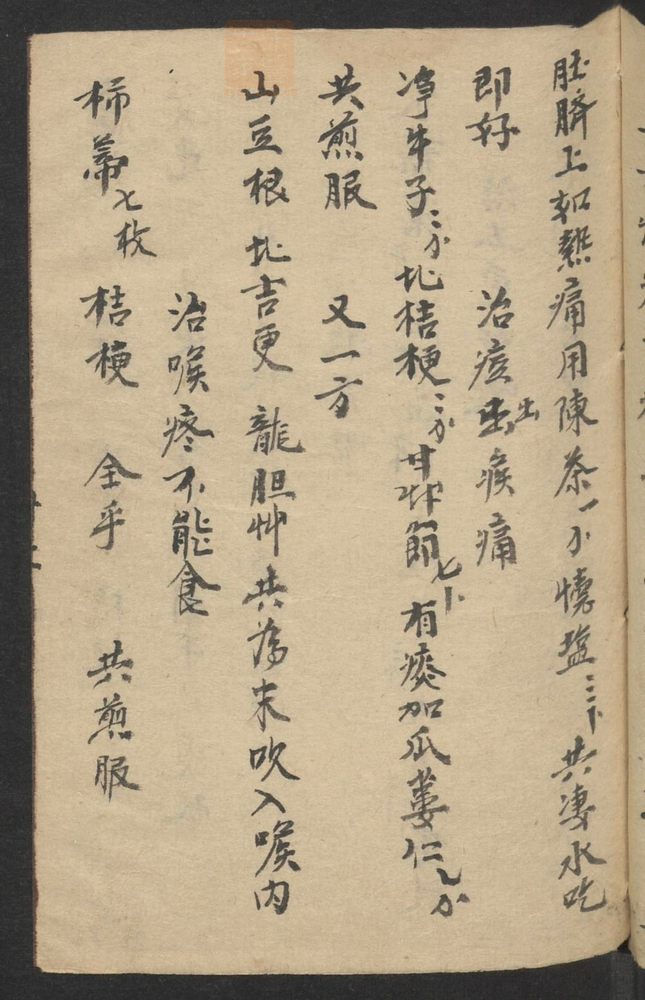 肚臍上如熱痛用陳茶一小 塩三下共凄水吃
即好 治痘出喉痛
淨牛子三分北桔梗三分甘艸節七卜有痰加瓜蔞仁乙分
共煎服 又一方
山豆根 北吉更 龍胆艸共為末吹入喉内
治喉疼不能食
柿蒂七枚 桔梗 全乎 共煎服